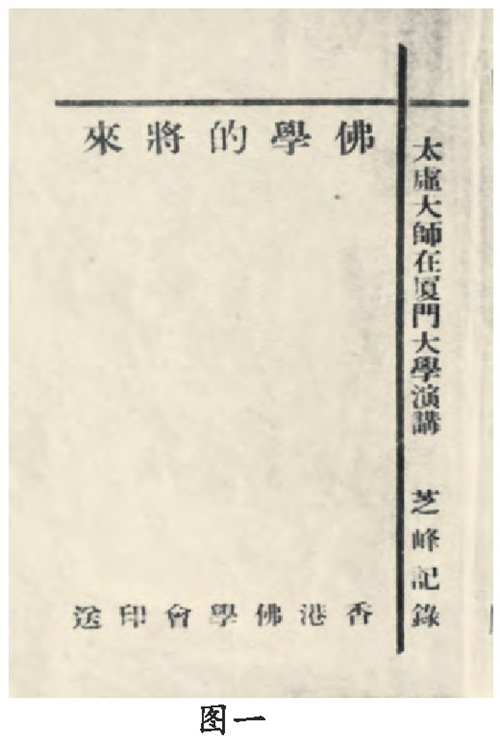 佛學的將來
太虛大師在厦門大學演講　芝峰記錄
香港佛學會印送
图一